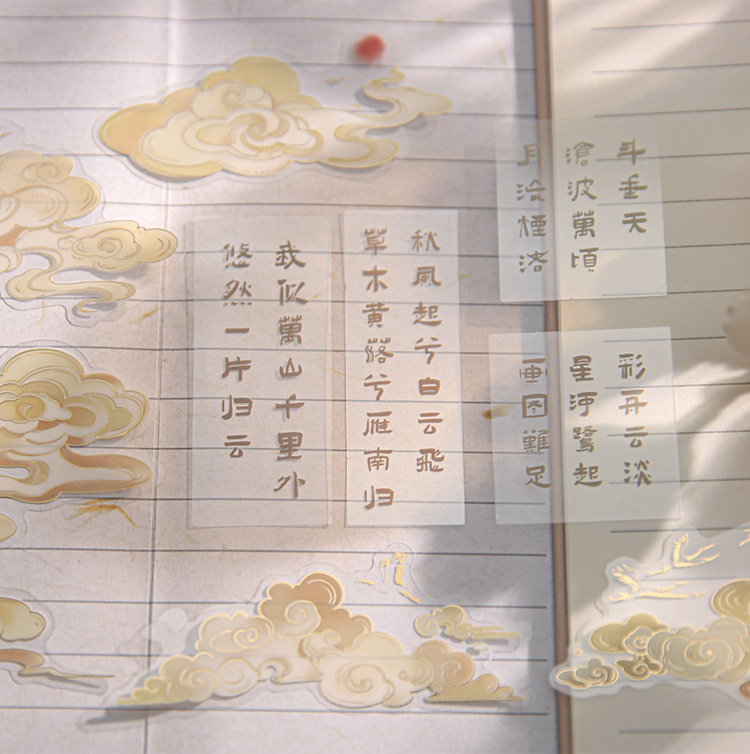 斗垂天
滄波萬頃
月流煙渚
彩舟云淡
星河鹭起
画图難足
秋風起兮白云飛
草木黄落兮雁南归
我似萬山千里外
悠然一片归云